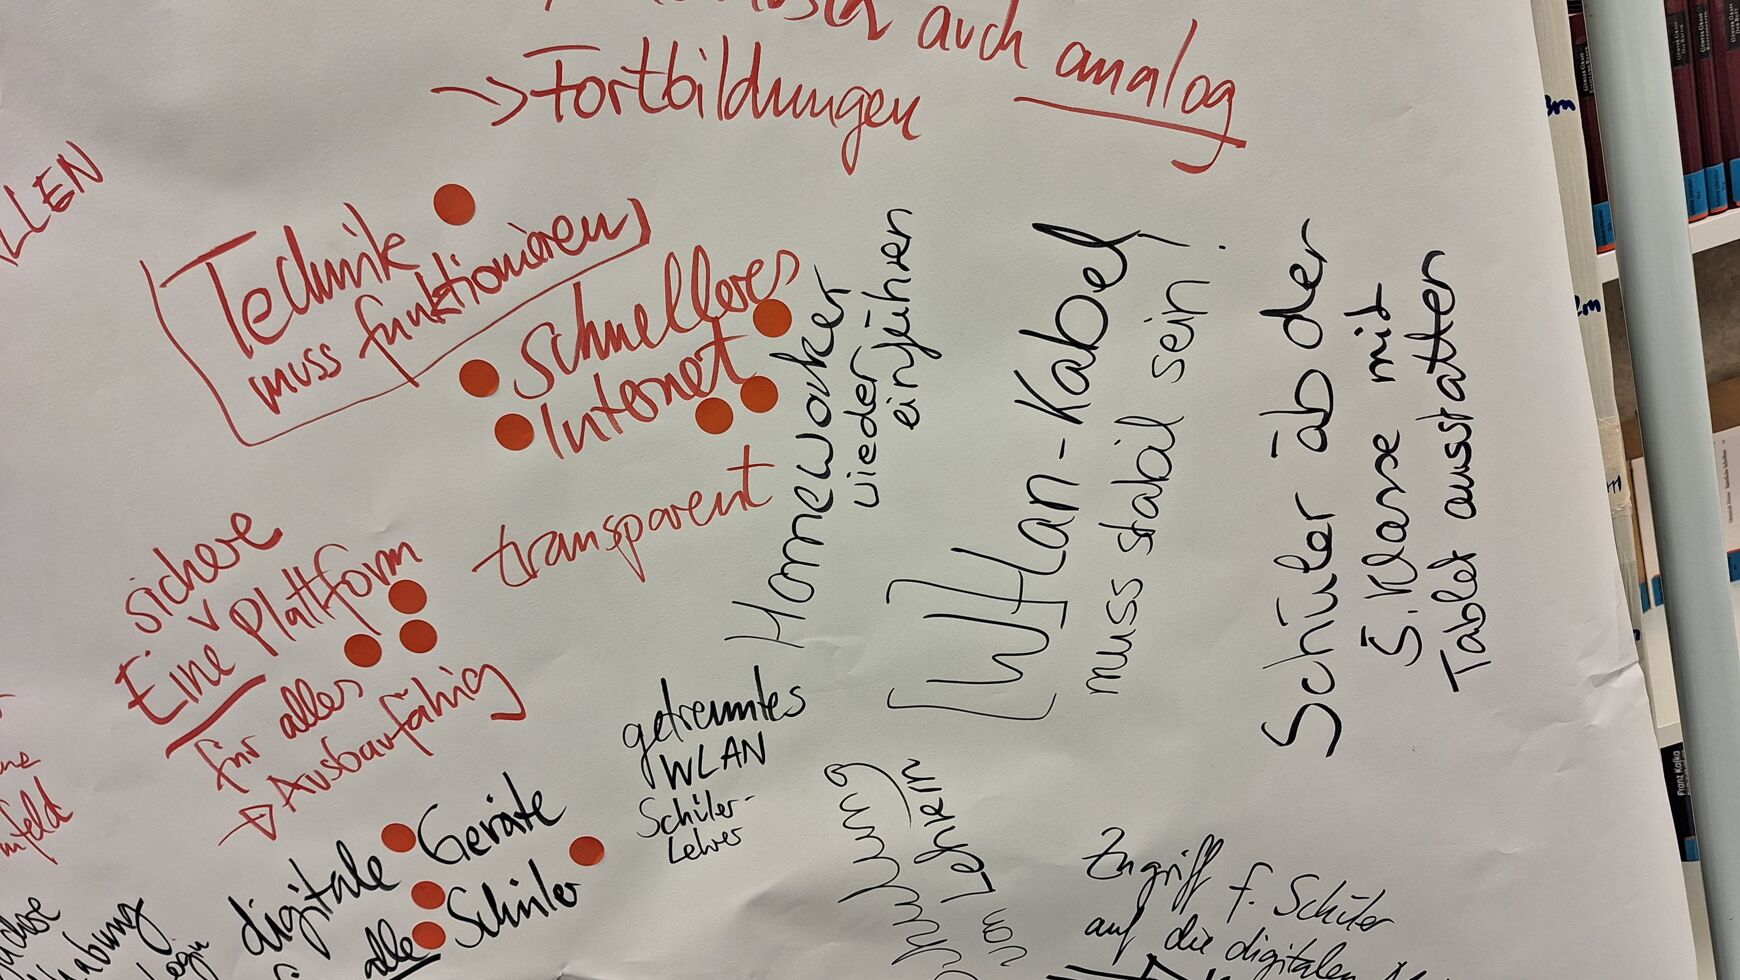 auch analog
→ Fortbildungen
LLEN
Technik
muss funktionieren
schnelleres
Internet
transparent
sichere
Eine Plattform
für alles
→ Ausbaufähig
Homeworker
wieder
einführen
Lan-Kabel
muss stabil sein!
Schüler ab der
5. Klasse mit
Tablet ausstatten
getrenntes
WLAN
Schüler-
Lehrer
digitale Geräte
alle Schüler
von Lehrern
Zugriff f. Schüler
auf die digitalen
Login
Franz Kafka